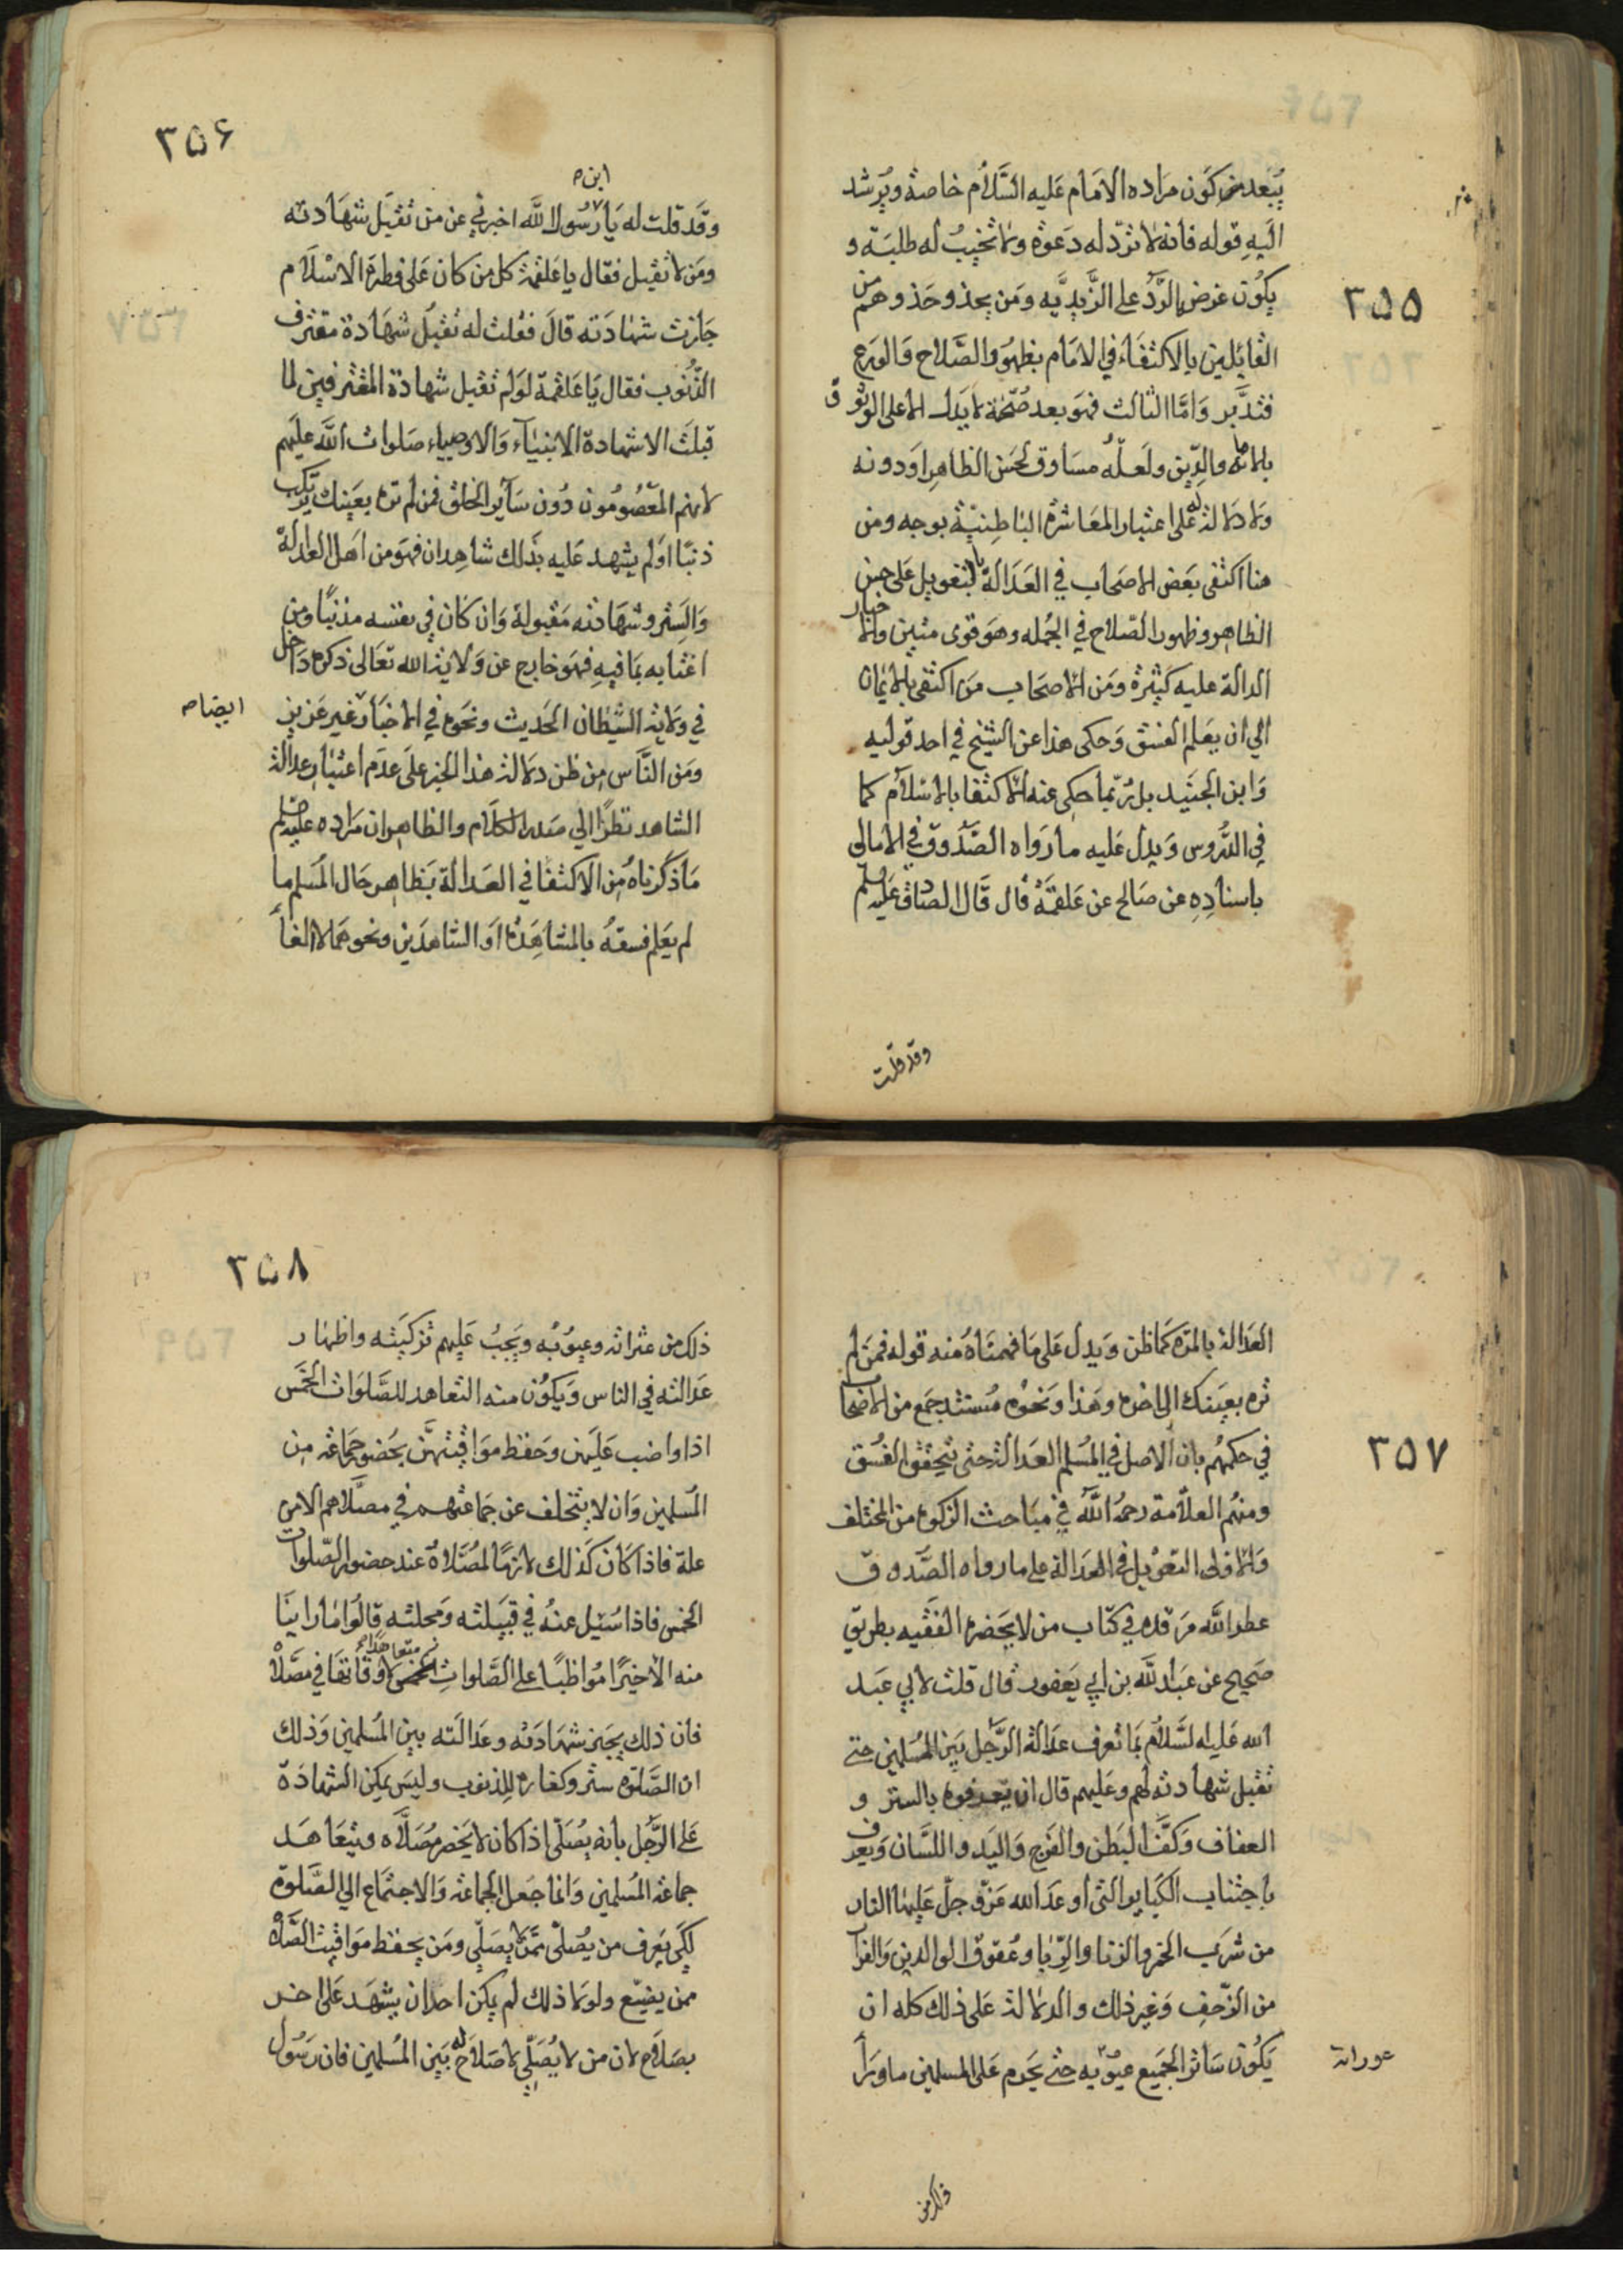 ٣٥٥
يبعد من كون مراده الامام عليه السّلام خاصة ويرشد
اليه قوله فانه لا تردّ له دعوة ولا تخيبُ له طلبة و
يكون غرض الرّد على الزّيديّه ومن يحذو حذوهم من
القائلين بالاكتفاء في الامام بظهور الصّلاح والورع
فتدبّر وامّا الثالث فهو بعد صحّته لا يدل الا على الوثوق
بالامانة والدّين ولعلّه مساوق لحسن الظاهر او دونه
ولا دلالة له على اعتبار المعاشرة الباطنيّة بوجه ومن
هنا اكتفى بعض الاصحاب في العدالة بالتعويل على حسن
الظاهر وظهور الصّلاح في الجُمله وهو قوى متين والاخبار
الدالة عليه كثيرة ومن الاصحاب من اكتفى بالايمان
الي ان يعلم الفسق وحكى هذا عن الشيخ في احد قوليه
وابن الجنيد بل رُبّما حكى عنه الاكتفا بالاسلام كما
في الدُّروس ويدل عليه ما رواه الصّدوق في الامالى
باسنادِهِ عن صالح عن علقمة قال قال الصادق عليه السلم
وقد قلت
٣٥٦
ابن ص
وقد قلت له يا رسُول الله اخبرني عن من تقبل شهادته
ومن لا تقبل فقال يا علقمة كل من كان على فطرة الاسلام
جازت شهادته قال فقلت له تقبل شهادة مقترف
الذّنوب فقال يا علقمة لو لم تقبل شهادة المقترفين لما
قبلت الا شهادة الانبيآء والاوصياء صلوات الله عليهم
لانهم المعصُومُون دون سآير الخلق فمن لم تره بعينك يرتكب
ذنبًا او لم يشهد عليه بذلك شاهدان فهو من اهل العدالة
والسّتر وشهادته مقبولة وان كان في نفسه مذنبًا ومن
اغتابه بما فيه فهو خارج عن ولاية الله تعالى ذكره داخل
في ولاية الشّيطان الحديث ونحوه في الاخبار غير عزيز
ايضا ص
ومن النّاس من ظن دلالة هذا الخبر على عدم اعتبار عدالة
الشاهد نظرًا الي صدر الكلام والظاهر ان مراده عليه السلم
ما ذكرناه من الاكتفا في العدالة بظاهر حال المسلم ما
لم يعلم فسقه بالمشاهدة او الشاهدين ونحوهما لا الغآء
٣٥٧
العدالة بالمرّه كما ظن ويدل على ما فهمناه منه قوله فمن لم
تره بعينك الى اخره وهذا ونحوه مستند جمع من الاصحاب
في حكمهُم بان الاصل في المُسلم العدالة حتى يتحقق الفسق
ومنهم العلّامة رحمهُ الله في مباحث الزكوة من المختلف
والاولى التعويل في العدالة على ما رواه الصّدوق
عطر الله مرقده في كتاب من لا يحضره الفقيه بطريق
صحيح عن عبد الله بن ابي يعفور قال قلت لابي عبد
الله عليه السّلام بما تعرف عدالة الرّجل بين المُسلمين حتى
تقبل شهادته لهم وعليهم قال ان يعرفوه بالستر و
العفاف وكفّ البطن والفرج واليد واللسان ويعرف
باجتناب الكباير التى اوعد الله عزّ وجلّ عليها النار
من شرب الخمر والزنا والرّبا وعقوق الوالدين والفرار
من الزّحف وغير ذلك والدلالة على ذلك كله ان
يكون ساترا لجميع عيوبه حتى يحرم على المسلمين ما ورآء
عوراته
ذلك من
٣٥٨
ذلك من عثراته وعيوُبه ويجبُ عليهم تزكيته واظهار
عدالته في الناس ويكون منه التعاهد للصّلوات الخمس
اذا واضب عليهن وحفظ مواقيتهنّ بحضور جماعة من
المُسلمين وان لا يتخلف عن جماعتهم في مصلّاهم الا من
علة فاذا كان كذلك لازمًا لمصّلاهُ عند حضور الصّلوات
الخمس فاذا سُئِل عنهُ في قبيلته ومحلته قالوا ما راينا
منه الا خيرًا مُواظبًا على الصّلوات متعاهدًا لاوقاتها في مصّلاه
فان ذلك يجيز شهادته وعدالته بين المُسلمين وذلك
ان الصّلوة ستر وكفارة للذنوب وليس يمكن الشهادة
على الرّجُل بانه يُصَلّى اذا كان لا يحضر مُصلّاه ويتعاهد
جماعة المُسلمين وانما جعل الجماعة والاجتماع الي الصّلوة
لكى يعرف من يُصلّى ممّن لا يصلّي ومن يحفظ مواقيت الصّلاة
ممن يضيّع ولولا ذلك لم يكن احد ان يشهد على اخر
بصلاح لان من لا يُصَلّي لا صلاح له بين المُسلمين فان رسُول